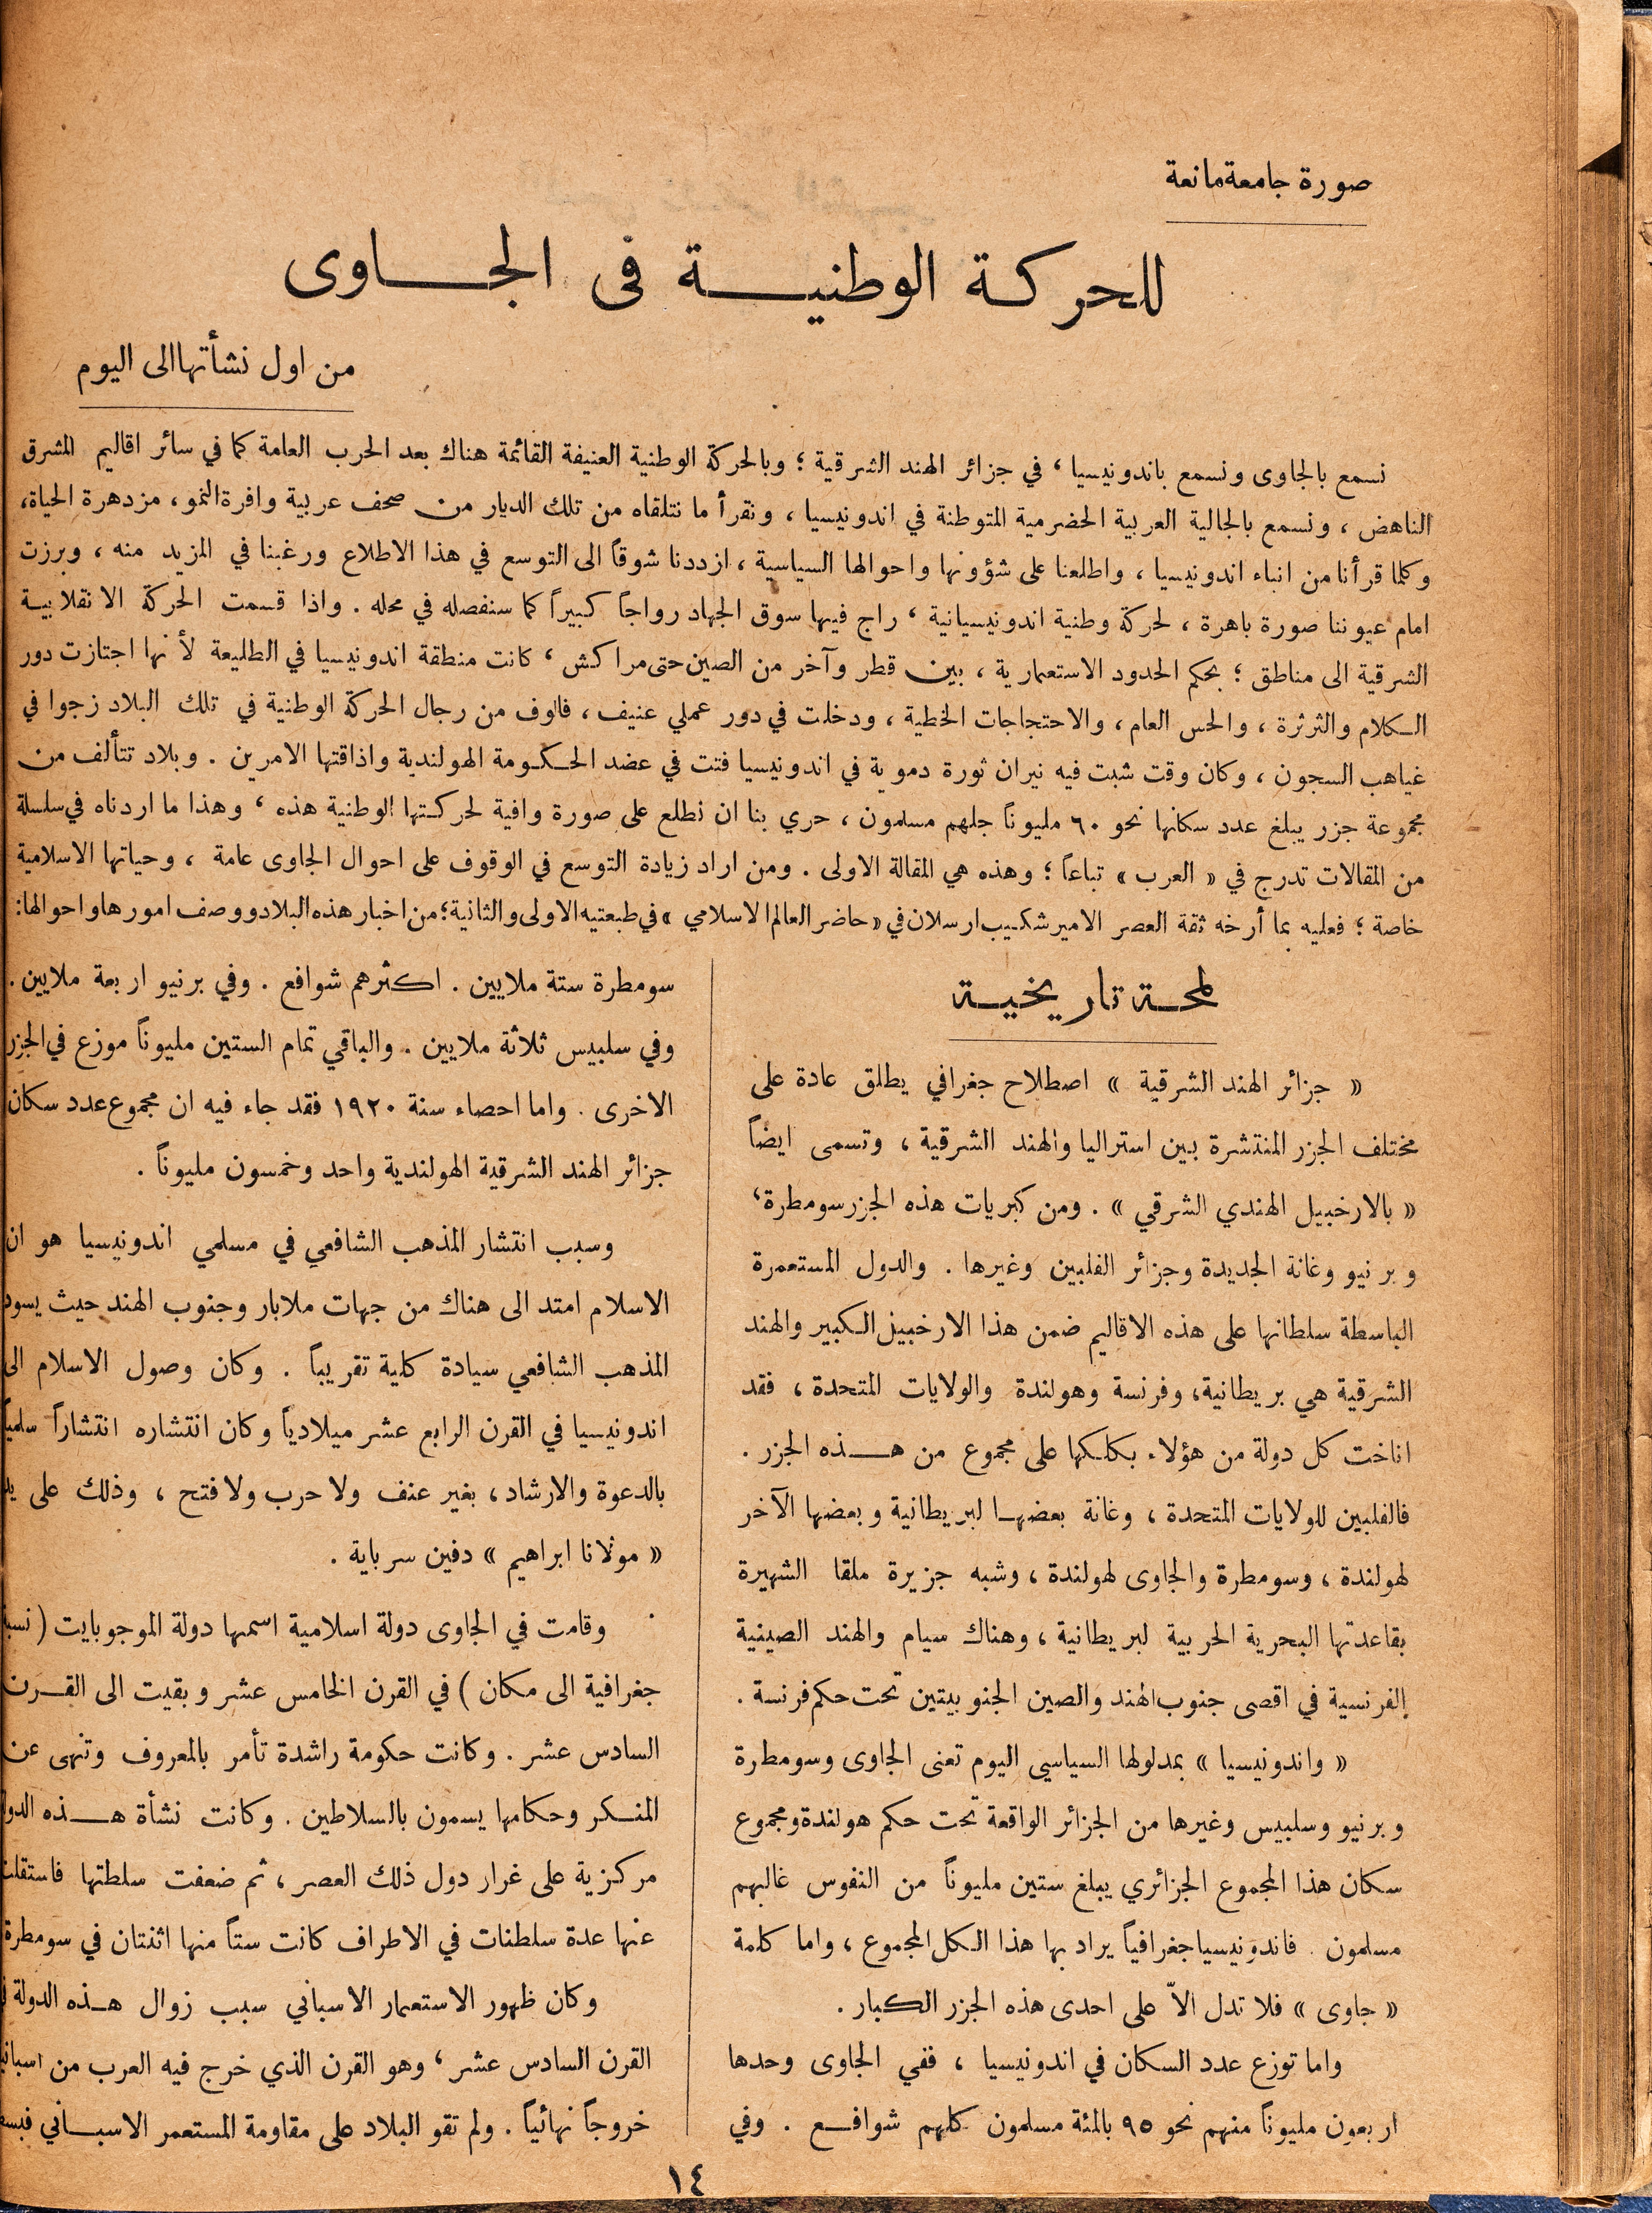 صورة جامعة مانعة
للحركة الوطنية فى الجاوى
من اول نشأتها الى اليوم
نسمع بالجاوى ونسمع باندونيسيا ، في جزائر الهند الشرقية ؛ وبالحركة الوطنية العنيفة القائمة هناك بعد الحرب العامة كما في سائر اقاليم المشرق
الناهض ، ونسمع بالجالية العربية الحضرمية المتوطنة في اندونيسيا ، ونقرأ ما نتلقاه من تلك الديار من صحف عربية وافرة النمو ، مزدهرة الحياة،
وكلما قرأنا من انباء اندونيسيا ، واطلعنا على شؤونها واحوالها السياسية ، ازددنا شوقاً الى التوسع في هذا الاطلاع ورغبنا في المزيد منه ، وبرزت
امام عيوننا صورة باهرة ، لحركة وطنية اندونيسيانية ، راج فيها سوق الجهاد رواجاً كبيراً كما سنفصله في محله . واذا قسمت الحركة الانقلابية
الشرقية الى مناطق ؛ بحكم الحدود الاستعمارية ، بين قطر وآخر من الصين حتى مراكش ، كانت منطقة اندونيسيا في الطليعة لأنها اجتازت دور
الكلام والثرثرة ، والحس العام ، والاحتجاجات الخطية ، ودخلت في دور عملي عنيف ، فالوف من رجال الحركة الوطنية في تلك البلاد زجوا في
غياهب السجون ، وكان وقت شبت فيه نيران ثورة دموية في اندونيسيا فتت في عضد الحكومة الهولندية واذاقتها الامرين . وبلاد تتألف من
مجموعة جزر يبلغ عدد سكانها نحو ٦٠ مليوناً جلهم مسلمون ، حري بنا ان نطلع على صورة وافية لحركتها الوطنية هذه ، وهذا ما اردناه في سلسلة
من المقالات تدرج في « العرب » تباعاً ؛ وهذه هي المقالة الاولى . ومن اراد زيادة التوسع في الوقوف على احوال الجاوى عامة ، وحياتها الاسلامية
خاصة ؛ فعليه بما أرخه ثقة العصر الامير شكيب ارسلان في « حاضر العالم الاسلامي » في طبعتيه الاولى والثانية ؛ من اخبار هذه البلاد ووصف امورها واحوالها:
لمحة تاريخية
« جزائر الهند الشرقية » اصطلاح جغرافي يطلق عادة على
مختلف الجزر المنتشرة بين استراليا والهند الشرقية ، وتسمى ايضاً
« بالارخبيل الهندي الشرقي » . ومن كبريات هذه الجزر سومطرة ،
وبرنيو وغانة الجديدة وجزائر الفلبين وغيرها . والدول المستعمرة
الباسطة سلطانها على هذه الاقاليم ضمن هذا الارخبيل الكبير والهند
الشرقية هي بريطانية ، وفرنسة وهولندة والولايات المتحدة ، فقد
اناخت كل دولة من هؤلاء بكلكلها على مجموع من هذه الجزر .
فالفلبين للولايات المتحدة ، وغانة بعضها لبريطانية وبعضها الآخر
لهولندة ، وسومطرة والجاوى لهولندة ، وشبه جزيرة ملقا الشهيرة
بقاعدتها البحرية الحربية لبريطانية ، وهناك سيام والهند الصينية
الفرنسية في اقصى جنوب الهند والصين الجنوبيتين تحت حكم فرنسة .
« واندونيسيا » بمدلولها السياسي اليوم تعنى الجاوى وسومطرة
وبرنيو وسلبيس وغيرها من الجزائر الواقعة تحت حكم هولندة ومجموع
سكان هذا المجموع الجزائري يبلغ ستين مليوناً من النفوس غالبهم
مسلمون . فاندونيسيا جغرافياً يراد بها هذا الكل المجموع ، واما كلمة
« جاوى » فلا تدل الاّ على احدى هذه الجزر الكبار .
واما توزع عدد السكان في اندونيسيا ، ففي الجاوى وحدها
اربعون مليوناً منهم نحو ٩٥ بالمئة مسلمون كلهم شوافع . وفي
سومطرة ستة ملايين . اكثرهم شوافع . وفي برنيو اربعة ملايين .
وفي سلبيس ثلاثة ملايين . والباقي تمام الستين مليوناً موزع في الجزر
الاخرى . واما احصاء سنة ١٩٢٠ فقد جاء فيه ان مجموع عدد سكان
جزائر الهند الشرقية الهولندية واحد وخمسون مليوناً .
وسبب انتشار المذهب الشافعي في مسلمي اندونيسيا هو ان
الاسلام امتد الى هناك من جهات ملابار وجنوب الهند حيث يسود
المذهب الشافعي سيادة كلية تقريباً . وكان وصول الاسلام الى
اندونيسيا في القرن الرابع عشر ميلادياً وكان انتشاره انتشاراً سلمياً
بالدعوة والارشاد ، بغير عنف ولا حرب ولا فتح ، وذلك على يد
« مولانا ابراهيم » دفين سرباية .
وقامت في الجاوى دولة اسلامية اسمها دولة الموجوبايت ( نسبة
جغرافية الى مكان ) في القرن الخامس عشر وبقيت الى القرن
السادس عشر . وكانت حكومة راشدة تأمر بالمعروف وتنهى عن
المنكر وحكامها يسمون بالسلاطين . وكانت نشأة هذه الدولة
مركزية على غرار دول ذلك العصر ، ثم ضعفت سلطتها فاستقلت
عنها عدة سلطنات في الاطراف كانت ستاً منها اثنتان في سومطرة
وكان ظهور الاستعمار الاسباني سبب زوال هذه الدولة في
القرن السادس عشر ، وهو القرن الذي خرج فيه العرب من اسبانيا
خروجاً نهائياً . ولم تقو البلاد على مقاومة المستعمر الاسباني
١٤